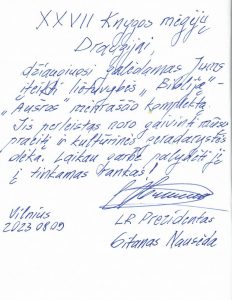 XXVII Knygos mėgėjų
Draugijai,
džiaugiuosi galėdamas Jums
įteikti lietuvybės „Bibliją" –
„Aušros" laikraščio komplektą.
Jis perleistas noro gaivinti mūsų
praeitį ir kultūrinės
dėka. Laikau garbe palydėti jį
į tinkamas rankas!
Vilnius
2023 08 09
LR Prezidentas
Gitanas Nausėda